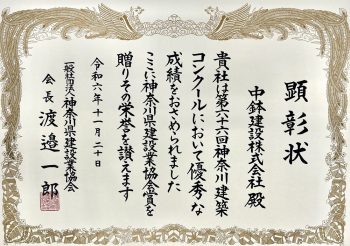 顕彰状
中鉢建設株式会社 殿
貴社は第六十六回神奈川建築
コンクールにおいて優秀な
成績をおさめられました
ここに神奈川県建設業協会賞を
贈りその栄誉を讃えます
令和六年十一月二十日
一般社団法人神奈川県建設業協会
会長 渡邉一郎